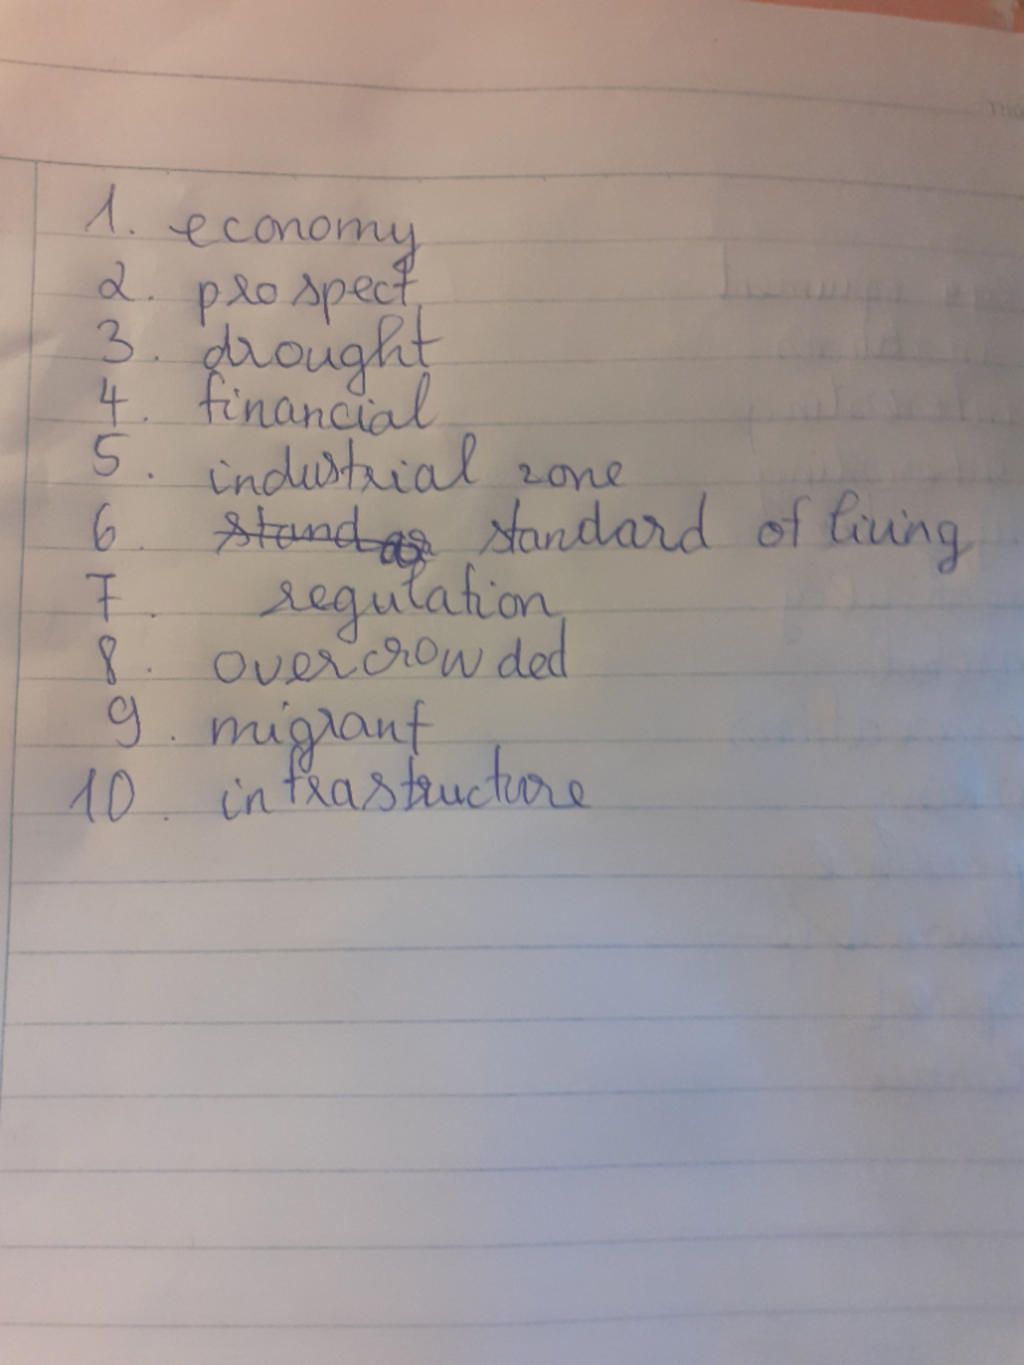 1. economy
2. prospect
3. drought
4. financial
5. industrial zone
6. standard of living
7. regulation
8. overcrowded
9. migrant
10. infrastructure